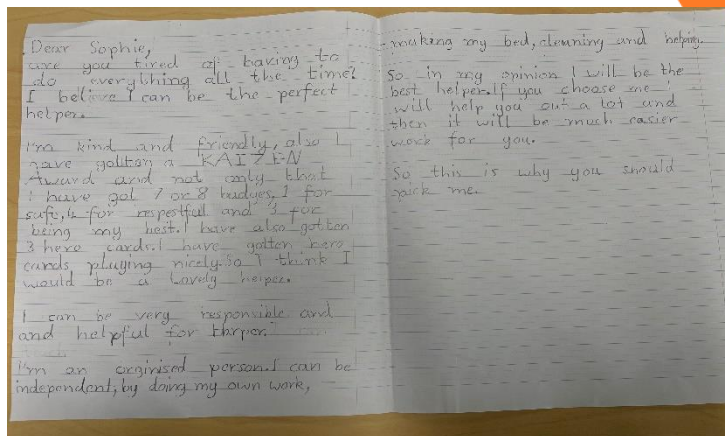 Dear Sophie,
are you tired of having to
do everything all the time?
I believe I can be the perfect
helper.
I'm kind and friendly, also I
have gotton a KAIZEN
Award and not only that
I have got 7 or 8 badges. 1 for
safe, 4 for respestful and 3 for
being my best. I have also gotten
3 hero cards. I have gotten hero
cards playing nicely. So I think I
would be a lovely helper.
I can be very responsible and
and helpful for Harper.
I'm an orginised person. I can be
independent, by doing my own work,
making my bed, cleaning and helping.
So in my opinion I will be the
best helper. If you choose me I
will help you out a lot and
then it will be much easier
work for you.
So this is why you should
pick me.